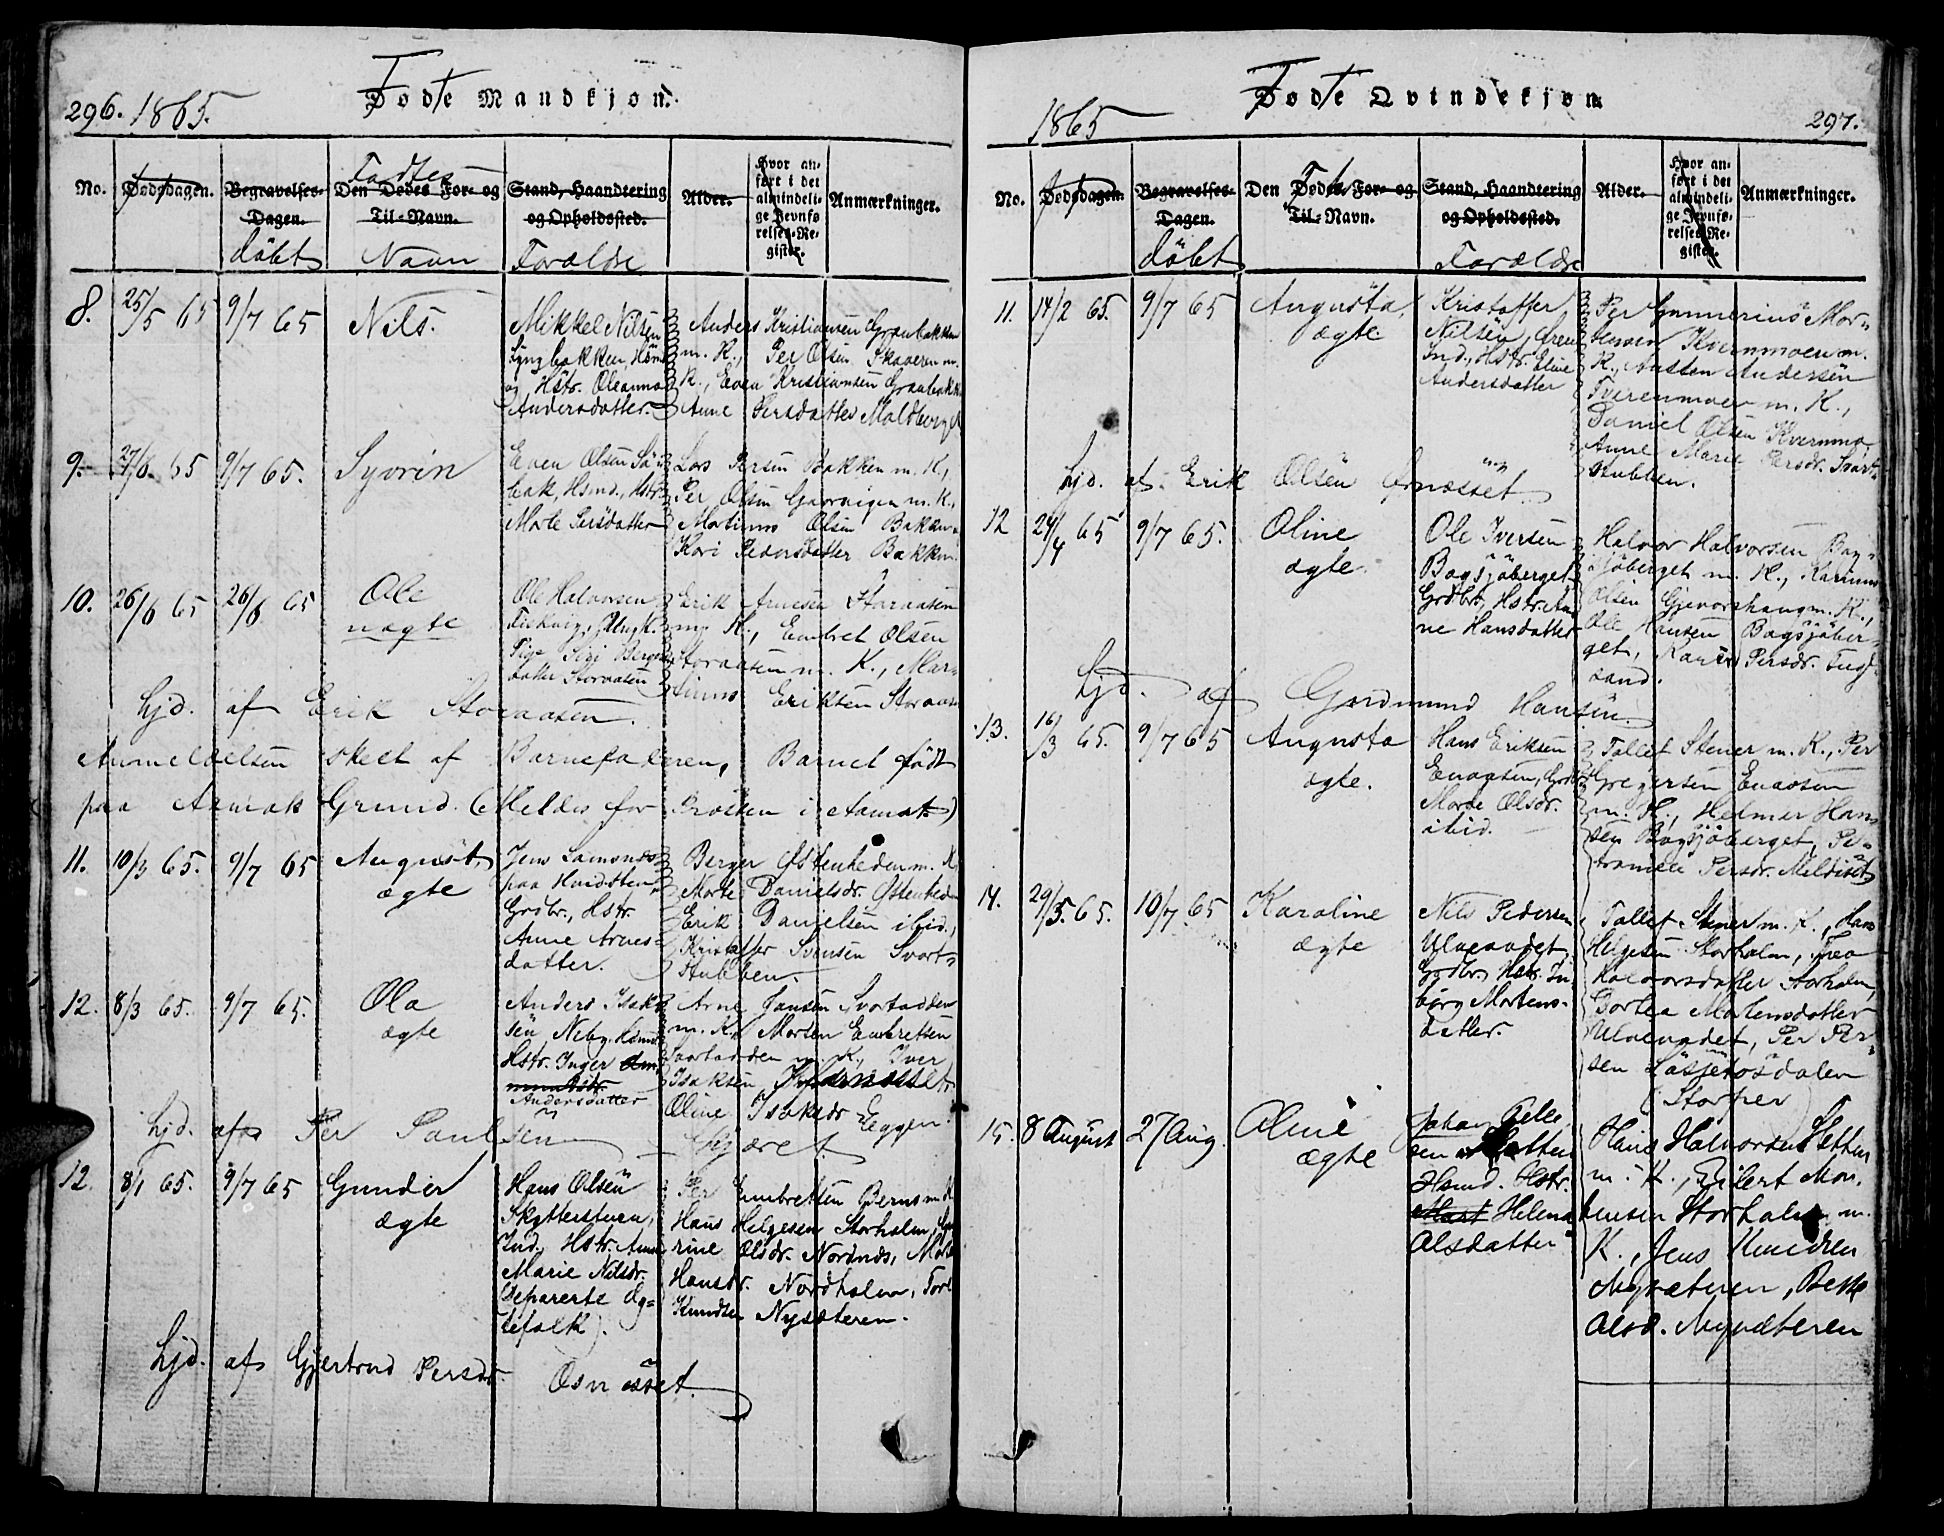 296. 1865.
Fødte Mandkjøn.
No.
Dødsdagen.
Begravelses-
Dagen.
døbt
Fødtes
Den Dødes For- og
Til-Navn.
Navn
Stand, Haandtering
og Opholdssted.
Forældre
Alder.
Hvor an-
ført i det
almindeli-
ge Jevnfø
relses-Re-
gister.
Anmærkninger.
8.
25/5 65
9/7 65
Nils.
Mikkel Nilsen
Hsm.
og Hstr. Oleanna
Andersdatter.
Anders Kristiansen Granbakken
m. K., Per Olsen Skaaren m.
K., Even Kristiansen Granbakken
Anne Persdatter Moldberget
9.
27/6 65
9/7 65.
Syvrin
Even Olsen
bak, Hsmd., Hstr.
Marte Persdatter
Lars Persen Bakken m. K.,
Per Olsen m. K.,
Martinus Olsen Bakken
Kari Pedersdatter Bakken.
10.
26/6 65
26/6 65
Ole
uægte
Ole Halvorsen
Fiskvig, Ungk.
Pige Siri
datter Storaasen
Erik Arnesen Storaasen
m. K., Embret Olsen
Storaasen m. K., Mar-
tinus Eriksen Storaasen
hjd. af Erik Storaasen.
Anmeldelsen skeet af Barnefaderen, Barnet født
paa Aamots Grund. (Meldes for Prosten i Aamot)
11.
10/3 65.
9/7 65
August
ægte
Jens
paa
Grdbr., Hstr.
Anne Arnes-
datter.
Berger Østenheden m. K.
Marte Danielsdr. Østenheden
Erik Danielsen ibid.,
Kristoffer Svensen Svart-
stubben.
12.
8/3 65.
9/7 65.
Ola
ægte
Anders Isak-
sen Neby, Hsmd.
Hstr. Inger
Andersdatter
Arne Jansen Svartadden
m. K., Morten Embretsen
Svartadden m. K., Iver
Isaksen
Oline Isaksdr Eggen.
hjd. af Per Paulsen Kjæret
12.
8/1 65.
9/7 65
Gunder
ægte
Hans Olsen
Skytterstuen,
Ind., Hstr. Anne
Marie Nilsdr.
(Separerte Æg-
tefolk).
Per Embretsen Berns m. K
Hans Helgesen Storholm,
rine Olsdr. Nordnæs,
Hansdr. Nordholm,
Knudsen Nysæteren.
hjd. af Gjertrud Persdr. Osnæsset.
1865
Fødte Qvindekjøn
297.
No.
Dødsdagen.
Begravelses-
Dagen.
døbt
Den Dødes For- og
Til-Navn.
Stand, Haandtering
og Opholdssted.
Forældre
Alder.
Hvor an-
ført i det
almindeli-
ge Jevnfø-
relses-Re-
gister.
Anmærkninger.
11.
14/2 65.
9/7 65
Augusta,
ægte
Kristoffer
Nilsen,
Ind., Hstr. Eline
Andersdatter
Per Gunnerius Mor-
tensen Kvernmoen m.
K., Austen Andersen
Tverenmoen m. K.,
Daniel Olsen Kvernmo
Anne Marie Persdr. Svart-
stubben.
hjd. af Erik Olsen Osnæsset
12
24/4 65
9/7 65.
Oline
ægte.
Ole Iversen
Bagsjøberget
Grdbr, Hstr. An-
ne Hansdatter
Halvor Halvorsen Bag-
sjøberget m. K., Karinus
Olsen Gjevershaug m. K.,
Ole Hansen Bagsjøber-
get, Karen Persdr. Fugl-
sand.
hjd. af Gudmund Hansen.
13.
16/3 65.
9/7 65
Augusta
ægte.
Hans Eriksen
Enaasen, Grdbr
Marte Olsdr.
ibid.
Tollef Stener m. K., Per
Gregersen Enaasen
m. K., Helmer Han-
sen Bagsjøberget, Pe-
tronelle Persdr. Meldiset
14.
29/5. 65.
10/7 65
Karoline
ægte
Nils Pedersen
Ulvevadet,
Grdbr, Hstr. In-
børg Mortens-
datter.
Tollef Stener m. K., Hans
Helgesen Storholm, Thea
Halvorsdatter Storholm,
Dortea Mortensdatter
Ulvevadet, Per Per-
sen Løssetøsdalen
(Storper)
15.
8 August
27 Aug.
Oline
ægte
Johan Pede
sen
Hsmd. Hstr.
Helena
Olsdatter
Hans Halvorsen Sletten
m. K., Eilert Mor-
tensen Storholm m.
K., Jens Knudsen
Nysæteren, Berte
Olsd. Nysæteren